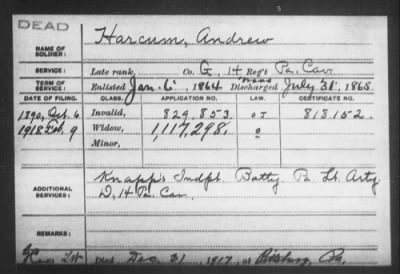 DEAD
NAME OF SOLDIER: Harcum, Andrew
SERVICE: Late rank, Co. G, 14 Reg't Pa. Cav.
TERM OF SERVICE: Enlisted Jan. 6, 1864 Discharged July 31, 1865
DATE OF FILING. CLASS. APPLICATION NO. LAW. CERTIFICATE NO.
1890, Oct. 6 Invalid, 829,853. 818152.
1918 Feb. 9 Widow, 1,117,298.
Minor,
ADDITIONAL SERVICES: Knapp's Indpt Batty Pa. Lt. Arty
D, 14 Pa. Cav.
REMARKS:
Died Dec. 31, 1917, at Pittsburg, Pa.